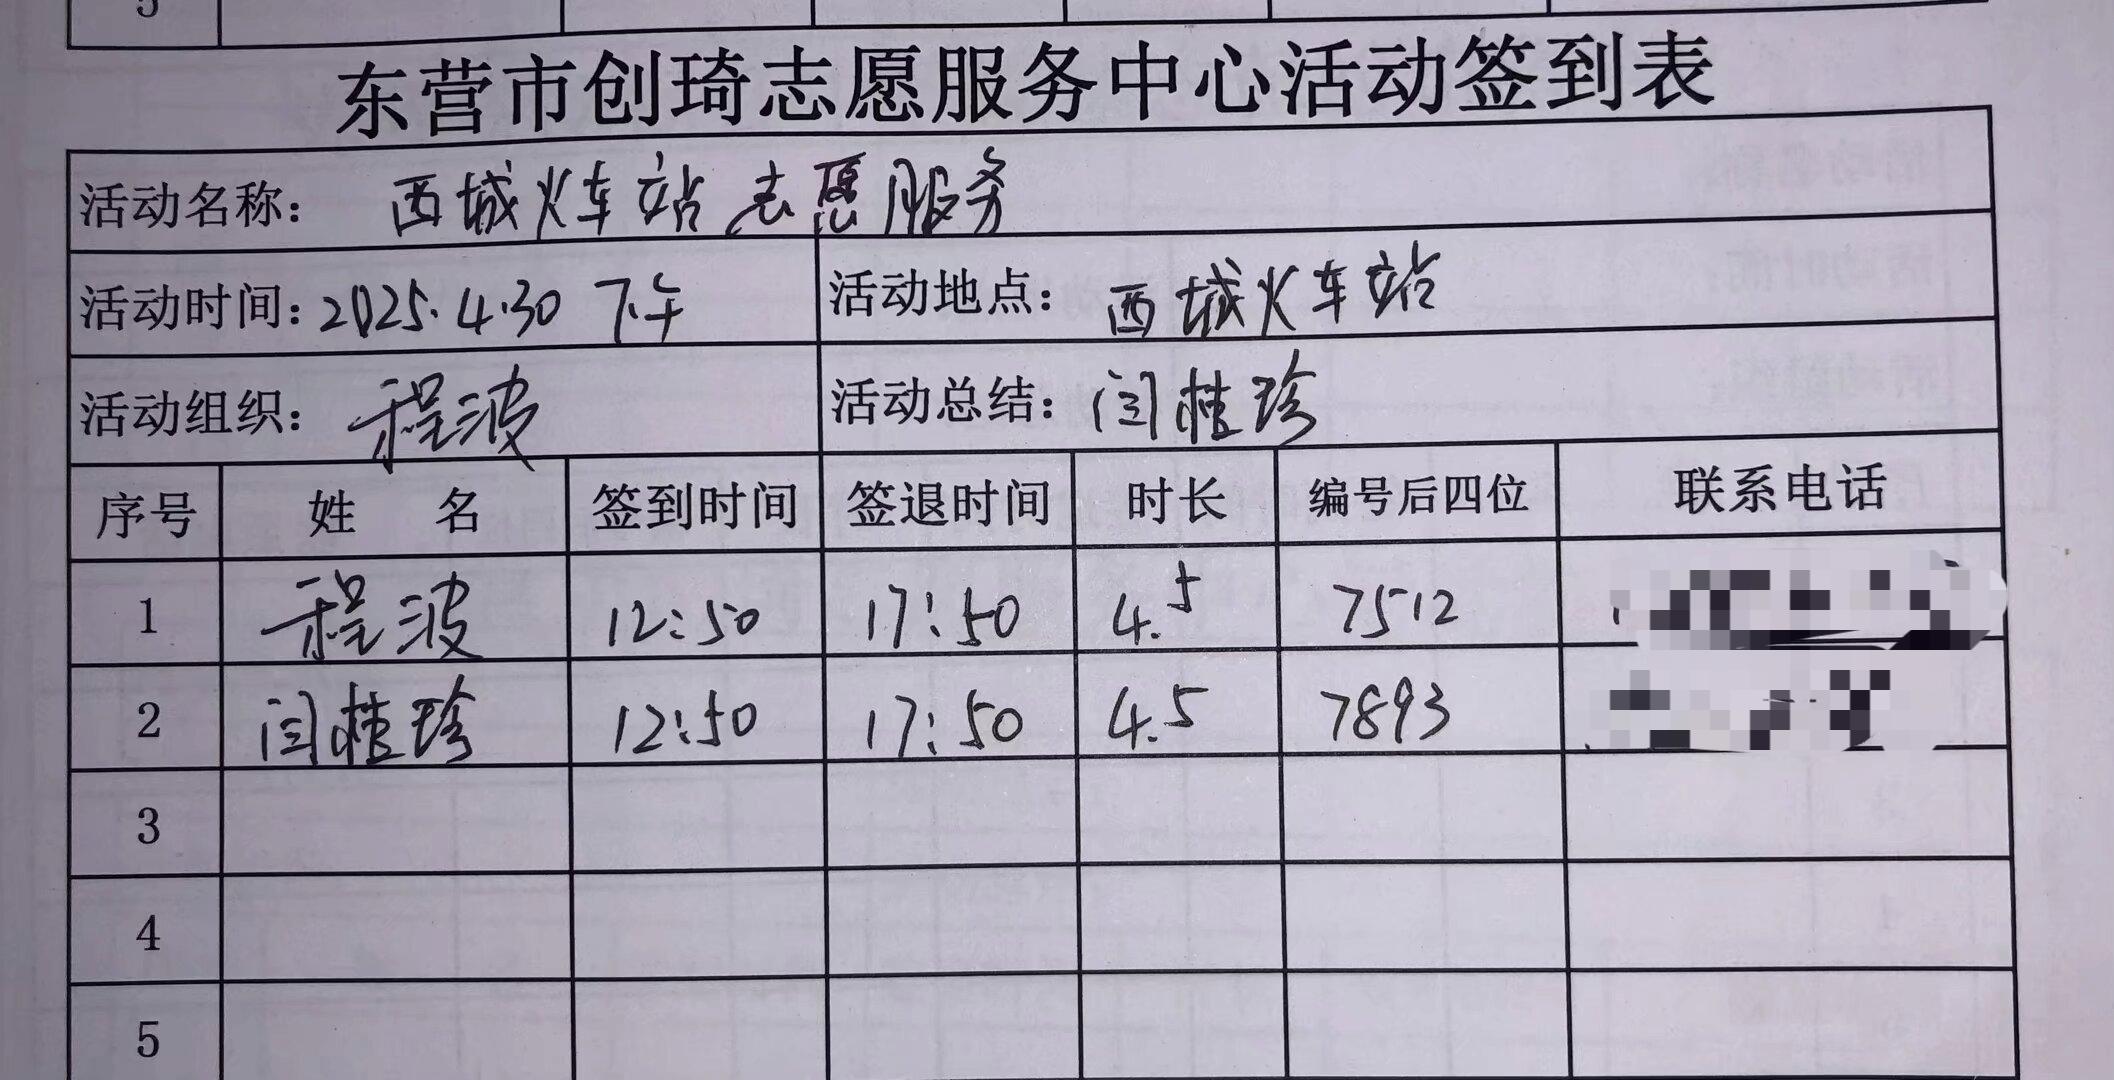 5
东营市创琦志愿服务中心活动签到表
活动名称: 西城火车站志愿服务
活动时间: 2025.4.30 下午 活动地点: 西城火车站
活动组织: 程波 活动总结: 闫桂珍
序号 姓 名 签到时间 签退时间 时长 编号后四位 联系电话
1 程波 12:50 17:50 4.5 7512
2 闫桂珍 12:50 17:50 4.5 7893
3
4
5